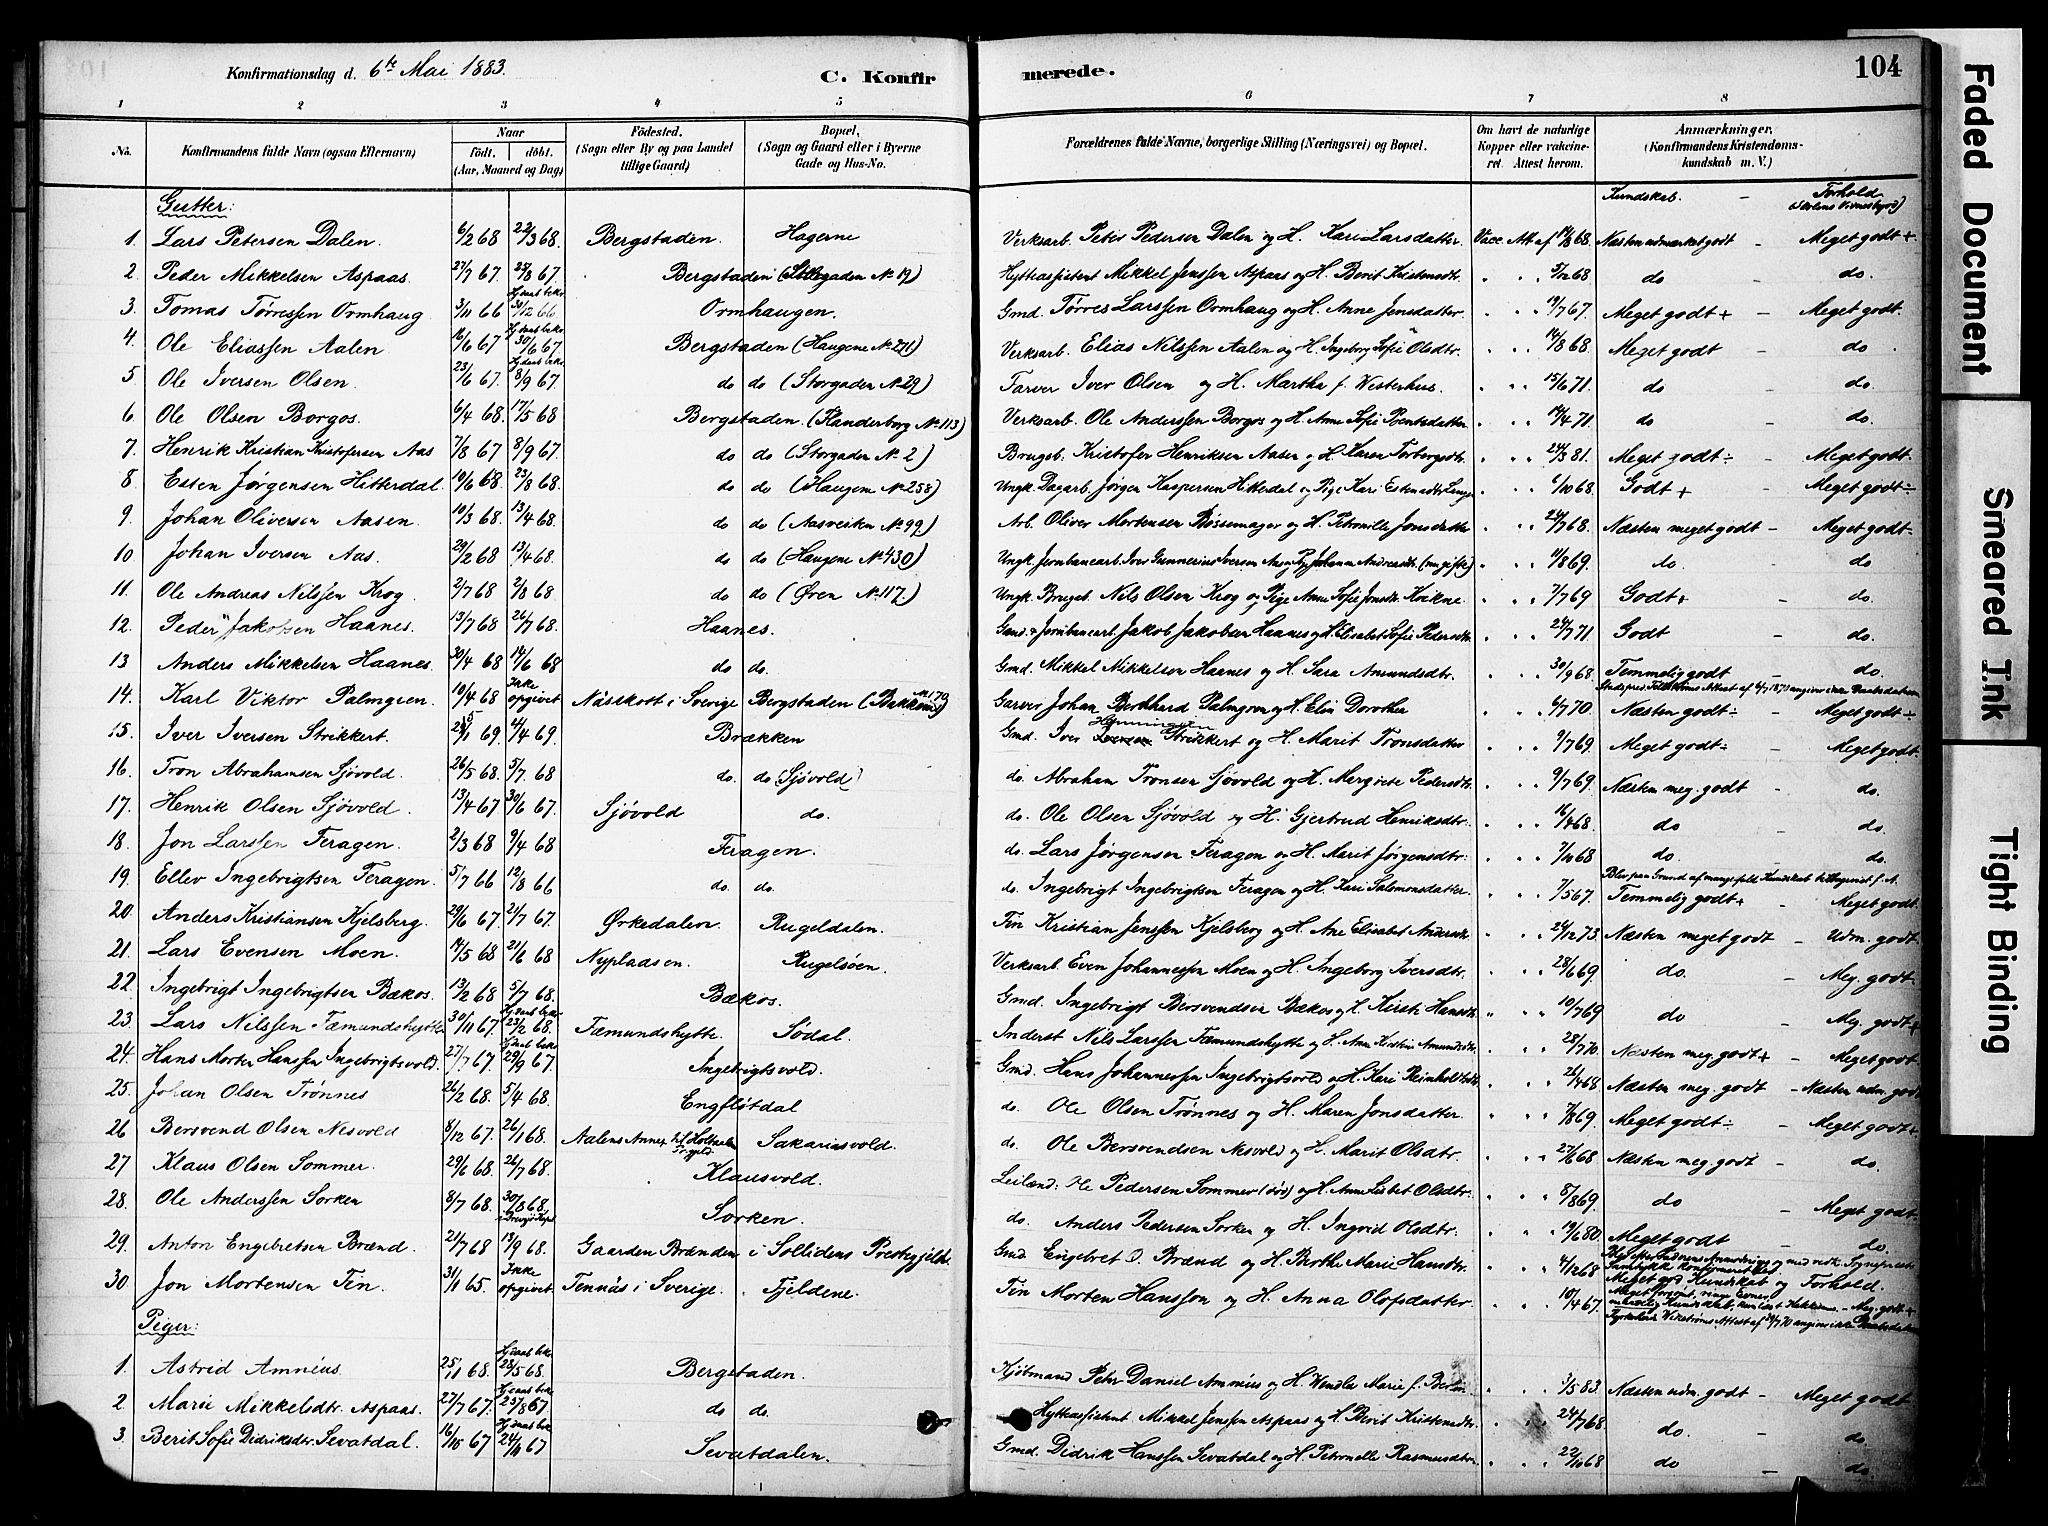 Konfirmationsdag d. 6te Mai 1883.
C. Konfirmerede.
104
1 2 3 4 5 6 7 8
No.
Konfirmandens fulde Navn (ogsaa Efternavn)
Naar
födt. döbt.
(Aar, Maaned og Dag)
Födested.
(Sogn eller By og paa Landet tillige Gaard)
Bopæl,
(Sogn og Gaard eller i Byerne Gade og Hus-No.
Forældrenes fulde Navne, borgerlige Stilling (Næringsvei) og Bopæl.
Om havt de naturlige Kopper eller vakcineret. Attest herom.
Anmærkninger.
(Konfirmandens Kristendomskundskab m. V.)
Gutter:
Kundskab. - Forhold
1. Lars Petersen Dalen. 6/2 68 22/3 68. Bergstaden. Hagerne Verksarb. Peter Pedersen Dalen og H. Kari Larsdatter. Vacc. Att af 14/8 68. Næsten udmærket godt - Meget godt +
2. Peder Mikkelsen Aspaas. 27/7 67. 25/8 67. Bergstaden (Storgaden No 19) Hytteassistent Mikkel Jenssen Aspaas og H. Berit Kristensdtr. " " 5/12 68 do - do.
3. Tomas Tørressen Ormhaug 3/11 66 30/12 66. Ormhaugen. Gmd. Tørres Larssen Ormhaug og H. Anne Jensdatter. " " 19/7 67. Meget godt + - Meget godt.
4. Ole Eliassen Aalen 16/6 67 30/6 67 Bergstaden (Haugene No 271) Verksarb. Elias Nilssen Aalen og H. Ingeborg Sofie Olsdtr. " " 14/8 68. Meget godt - do.
5. Ole Iversen Olsen. 23/6 67. 8/9 67. do do (Storgaden No 29) Farver Iver Olsen og H. Martha f. Westerhus. " " 15/6 71. do - do.
6. Ole Olsen Borgos. 6/4 68 17/5 68 Bergstaden. (Flanderborg No 113) Verksarb. Ole Anderssen Borgos og H. Anne Sofie Bentsdatter " " 14/4 71. do - do.
7. Henrik Kristian Kristofersen Aas 7/8 67 8/9 67. do do (Storgaden No 2) Brugsb. Kristofer Henriksen Aasen og H. Karen Torbergsdtr. " " 24/3 81. Meget godt ÷ - Meget godt.
8. Esten Jørgensen Hitterdal. 10/6 68. 23/8 68. do do (Haugene No 258) Ungk. Dagarb. Jörgen Kaspersen Hitterdal og Pige Kari Estensdtr " " 6/10 68. Godt + - Meget godt ÷
9. Johan Oliversen Aasen. 10/3 68. 13/4 68. do do (Aasveien No 99) Arb. Oliver Mortensen Bøssemager og H. Petronille Jonsdatter " " 24/7 68. Næsten meget godt - Meget godt.
10. Johan Iversen Aas. 29/2 68 13/4 68. do do (Haugene No 430) Ungk. Jernbanearb. Iver Gunnerius Iversen Aas og Pige Johanne Andersdtr. (ugifte) " " 11/8 69. do. - do
11. Ole Andreas Nilssen Krog. 2/7 68 2/8 68 do do (Øren No 117) Ungk. Brugsb. Nils Olsen Krog og Pige Anne Sofie Jonsdtr. Kvikne. " " 7/7 69 Godt + - do.
12. Peder Jakobsen Haanes. 13/7 68 26/7 68. Haanes. Gmd. & Jernbanearb. Jakob Jakobsen Haanes og H. Elisabet Sofie Pedersdtr. " " 24/7 71 Godt - do.
13 Anders Mikkelsen Haanes. 30/4 68 14/6 68 do do. Gmd. Mikkel Mikkelsen Haanes og H. Sara Amundsdtr. " " 30/9 68. Temmelig godt - do.
14. Karl Viktor Palmgren. 10/4 68 Ikke opgivet Näskott i Sverige Bergstaden (Bakkene No 179) Garver Johan Bernhard Palmgren og H. Elin Dorothea " " 6/7 70. Næsten godt ÷ - Meget godt ÷
15. Iver Iversen Strikkert. 29/1 69. 4/4 69. Brækken Gmd. Iver Henningsen Strikkert og H. Marit Tronsdatter " " 9/7 69. Meget godt ÷ - Meget godt.
16. Tron Abrahamsen Sjövold. 26/5 68. 5/7 68 do. do (Sjövold) do. Abraham Tronsen Sjövold og H. Margrete Pedersdtr. " " 9/7 69. Næsten meg. godt - do.
17. Henrik Olsen Sjövold. 13/4 67 30/6 67. Sjövold do. do. Ole Olsen Sjövold og H. Gjertrud Henriksdtr. " " 16/4 68. do - do.
18. Jon Larssen Feragen. 2/3 68 9/4 68 Feragen. do. Lars Jørgensen Feragen og H. Marit Jørgensdtr. " " 7/10 68 do. - do.
19. Ellev Ingebrigtsen Feragen. 5/7 66 12/8 66 do. do. do. Ingebrigt Ingebrigtsen Feragen og H. Kari Salomonsdatter. " " 7/5 67. Blev paa Grund af mangelfuld Kundskab tilbagevist f. A. Temmelig godt + - Meget godt.
20. Anders Kristiansen Kjelsberg. 29/6 67. 21/7 67. Ørkedalen Rugeldalen. Fin Kristian Jenssen Kjelsberg og H. Ane Elisabet Andersdtr. " " 24/12 73. Næsten meget godt - Udm. godt.
21. Lars Evensen Moen. 14/5 68 21/6 68 Nypladsen. Rugelsöen. Verksarb. Even Johannessen Moen og H. Ingeborg Iversdtr. " " 28/6 69. do. - Meg. godt.
22. Ingebrigt Ingebrigtsen Bækos. 13/2 68 5/7 68. Bækos. Gmd. Ingebrigt Bersvendsen Bækos og H. Kirsti Hansdtr. " " 10/7 69 do - Meg. godt +
23. Lars Nilssen Fæmundshytten 30/11 67. 23/2 68. Fæmundshytte. Södal. Inderst Nils Larssen Fæmundshytte og H. Ane Kirstine Amundsdtr. " " 28/7 70. Næsten meg. godt + - Meget godt.
24. Hans Morten Hanssen Ingebrigtsvold. 27/7 67. 29/9 67. Ingebrigtsvold. Gmd. Hans Johannessen Ingebrigtsvold og H. Kari Reinholtsdtr. " " 26/4 68. Næsten meg. godt - Næsten udm. godt
25. Johan Olsen Trønnes 26/2 68. 5/4 68. Engfløtdal do. Ole Olsen Trønnes og H. Maren Jonsdatter " " 7/8 69. Meget godt ÷ - Meget godt +
26 Bersvend Olsen Nesvold 8/12 67. 26/1 68. Aalens Annex til Holtaalen Prgjeld. Sakariasvold. do. Ole Bersvendsen Nesvold og H. Marit Olsdtr. " " 27/6 68 Næsten meg. godt - do.
27 Klaus Olsen Sommer. 29/6 68. 26/7 68. Klausvold. Leilænd: Ole Pedersen Sommer (död) og H. Anne Lisbet Olsdtr. " " 8/8 69. do - Meget godt.
28. Ole Anderssen Sorken 8/7 68. 30/8 68. Sorken. do. Anders Pedersen Sorken og H. Ingrid Olsdtr. " " 19/6 80. Meget godt - do.
29. Anton Engebretsen Brænd. 21/7 68 13/9 68. Gaarden Brænden i Sollidens Prestegjeld. Gmd. Engebret O. Brænd og H. Berthe Marie Hansdtr. " " 4/12 68 Meget god Kundskab og Forhold.
30. Jon Mortensen Fin. 31/1 65. Ikke opgivet Tennäs i Sverige. Fjeldene. Fin Morten Hansson og H. Anna Olofsdatter. " " 10/4 67.
Piger:
1. Astrid Amnéus. 25/1 68. 28/5 68. Bergstaden. Kjöbmand Peter Daniel Amnéus og H. Wendla Marie f. " " 3/5 83. Næsten udm. godt - Meget godt
2. Marie Mikkelsdtr. Aspaas. 27/7 67. 25/8 67 do do. Hytteassistent Mikkel Jenssen Aspaas og H. Berit Kristensdtr. " " 24/7 68. do. - do
3. Berit Sofie Didriksdtr. Sevatdal. 16/10 67 24/11 67 Sevatdalen. Gmd. Didrik Hanssen Sevatdal og H. Petronelle Rasmusdtr. " " 22/10 68 do - do.
Faded Document
Smeared Ink
Tight Binding